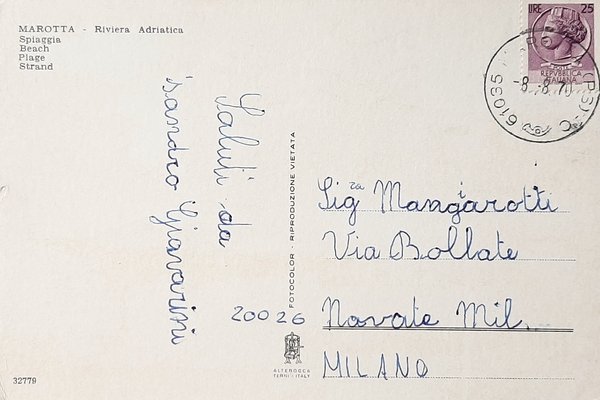 MAROTTA - Riviera Adriatica
Spiaggia
Beach
Plage
Strand
LIRE 25
REPVBBLICA
ITALIANA
61035
(PS)-C
-8.-8.70
Saluti da
Sandro Giavarini
FOTOCOLOR - RIPRODUZIONE VIETATA
Sig.za Mangiarotti
Via Bollate
20026 Novate Mil.
MILANO
ALTEROCCA
TERNI - ITALY
32779